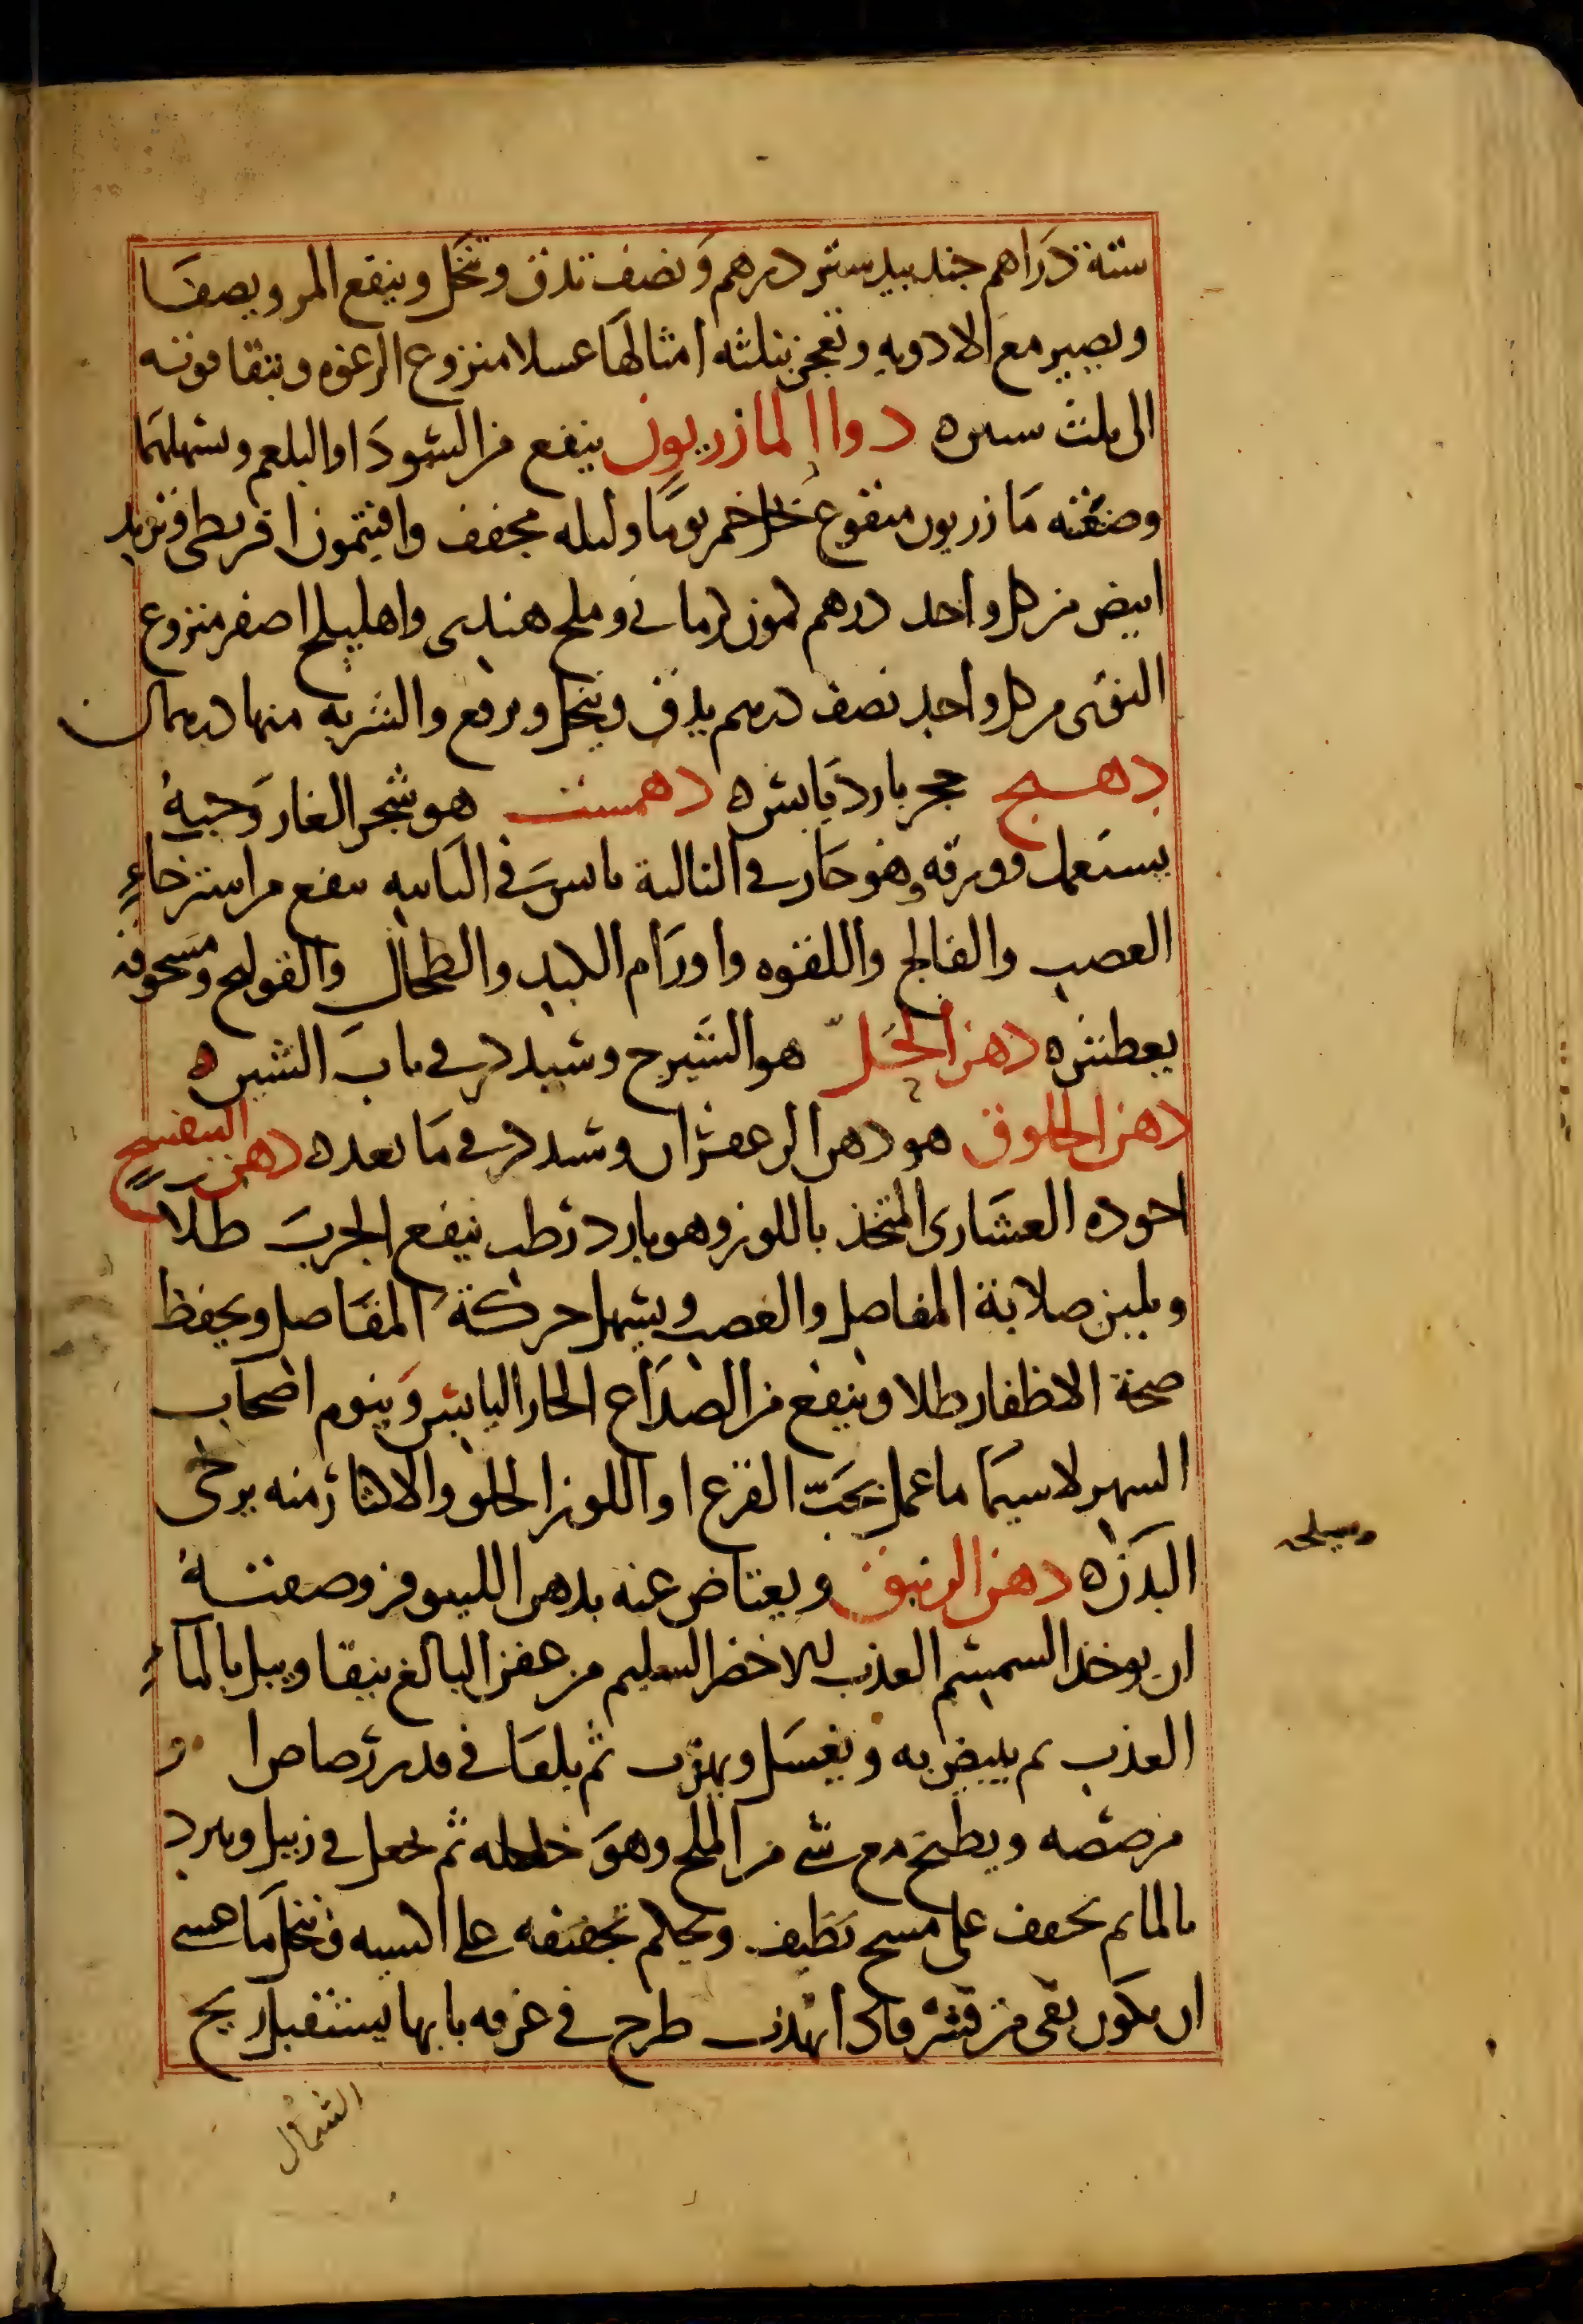 ستة دراهم جندبيدستر درهم ونصف تدق وتنخل وينقع المر ويصفا
ويصير مع الادويه وتعجن بثلثه امثالها عسلا منزوع الرغوه وتبقا قوته
الى ثلث سنين دوا المازريون ينفع من السودا والبلغم ويسهلهما
وصنعته مازريون منقوع بخل خمر يوما وليله مجفف وافيتمون اقريطى وتربد
ابيض من كل واحد درهم كمون كرمانى وملح هندى واهليلج اصفر منزوع
النوى من كل واحد نصف درهم يدق وينخل ويرفع والشربه منها درهمان
دهنج حجر بارد يابس ه دهمست هو شجر الغار وحبه
يستعمل وورقه وهو حار فى الثالثة يابس فى الثانيه ينفع من استرخاء
العصب والفالج واللقوه واورام الكبد والطحال والقولنج ومسحوقه
يعطس ه دهن الحل هو الشيرج وسيذكر فى باب الشين ه
دهن الخلوق هو دهن الزعفران وسيذكر فى ما بعده دهن البنفسج
اجوده العشارى المتخذ باللوز وهو بارد رطب ينفع الجرب طلاً
ويلين صلابة المفاصل والعصب ويسهل حركة المفاصل ويحفظ
صحة الاظفار طلا وينفع من الصداع الحار اليابس وينوم اصحاب
السهر لاسيما ما عمل بحب القرع او اللوز الحلو والاكثار منه يرخى
البدن ه دهن الزنبق ويعتاض عنه بدهن اللينوفر وصفته
ان يوخذ السمسم العذب للاخضر السليم من عفن البالغ ينقا ويبل بالماء
العذب ثم يبيض به ويغسل ويهذب ثم يلقا فى قدر رصاص او
مرصصه ويطبخ مع شى من الملح وهو خلطه ثم يجعل فى زبيل ويبرد
بالما ثم يجفف على مسح نظيف ويحكم تجفيفه على السبيه وتنخل ما عسى
ان يكون بقى من قشر فاذا تهذب طرح فى غرفه بابها يستقبل ريح
الشمال